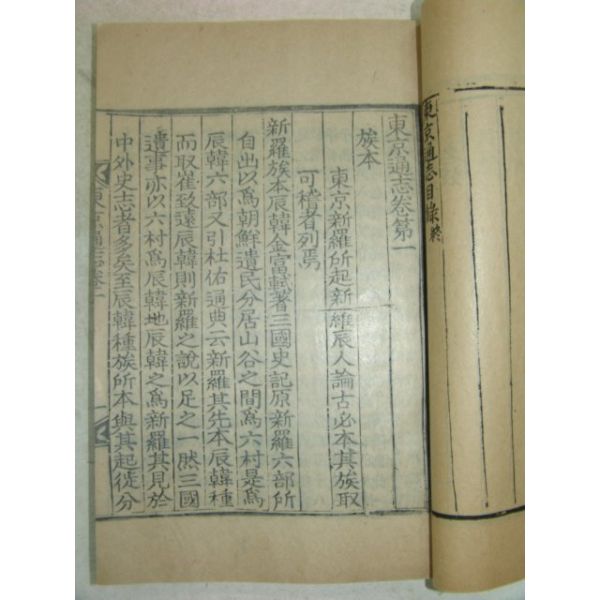 東京通志目錄終
東京通志卷第一
族本
東京新羅所起新羅辰人論古必本其族取
可稽者列焉
新羅族本辰韓金富軾著三國史記原新羅六部所
自出以爲朝鮮遺民分居山谷之間爲六村是爲
辰韓六部又引杜佑通典云新羅其先本辰韓種
而取崔致遠辰韓則新羅之說以足之一然三國
遺事亦以六村爲辰韓地辰韓之爲新羅其見於
中外史志者多矣至辰韓種族所本與其起徙分
東京通志卷一